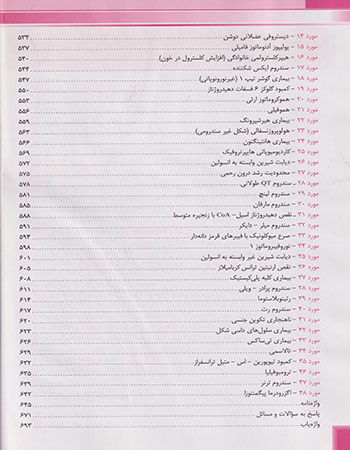 مورد ۱۴ - دیستروفی عضلانی دوشن ۵۳۴
مورد ۱۵ - پولیپوز آدنوماتوز فامیلی ۵۳۷
مورد ۱۶ - هیپرکلسترولمی خانوادگی (افزایش کلسترول در خون) ۵۴۰
مورد ۱۷ - سندروم ایکس شکننده ۵۴۴
مورد ۱۸ - بیماری گوشر تیپ ۱ (غیرنورونوپاتی) ۵۴۷
مورد ۱۹ - کمبود گلوکز ۶ فسفات دهیدروژناز ۵۵۰
مورد ۲۰ - هموکروماتوز ارثی ۵۵۳
مورد ۲۱ - هموفیلی ۵۵۶
مورد ۲۲ - بیماری هیرشپرونگ ۵۵۹
مورد ۲۳ - هولوپروزنسفالی (شکل غیر سندرومی) ۵۶۳
مورد ۲۴ - بیماری هانتینگتون ۵۶۶
مورد ۲۵ - کاردیومیوپاتی هایپرتروفیک ۵۶۹
مورد ۲۶ - دیابت شیرین وابسته به انسولین ۵۷۲
مورد ۲۷ - محدودیت رشد درون رحمی ۵۷۵
مورد ۲۸ - سندروم QT طولانی ۵۷۸
مورد ۲۹ - سندروم لینچ ۵۸۱
مورد ۳۰ - سندروم مارفان ۵۸۵
مورد ۳۱ - نقص دهیدروژناز اسیل- CoA با زنجیره متوسط ۵۸۸
مورد ۳۲ - سندروم میلر - دایکر ۵۹۱
مورد ۳۳ - صرع میوکلونیک با فیبرهای قرمز دانه‌دار ۵۹۴
مورد ۳۴ - نوروفیبروماتوز ۱ ۵۹۸
مورد ۳۵ - دیابت شیرین غیر وابسته به انسولین ۶۰۱
مورد ۳۶ - نقص ارنیتین ترانس کربامیلاز ۶۰۵
مورد ۳۷ - بیماری کلیه پلی‌کیستیک ۶۰۸
مورد ۳۸ - سندروم پرادر - ویلی ۶۱۱
مورد ۳۹ - رتینوبلاستوما ۶۱۴
مورد ۴۰ - سندروم رت ۶۱۷
مورد ۴۱ - ناهنجاری تکوین جنسی ۶۲۰
مورد ۴۲ - بیماری سلول‌های داسی شکل ۶۲۳
مورد ۴۳ - بیماری تی‌ساکس ۶۲۶
مورد ۴۴ - تالاسمی ۶۲۹
مورد ۴۵ - کمبود تیوپورین - اس - متیل ترانسفراز ۶۳۲
مورد ۴۶ - ترومبوفیلیا ۶۳۵
مورد ۴۷ - سندروم ترنر ۶۳۹
مورد ۴۸ - اگزرودرما پیگمنتوزا ۶۴۲
واژه‌نامه ۶۴۵
پاسخ به سؤالات و مسائل ۶۷۱
واژه‌یاب ۶۹۳